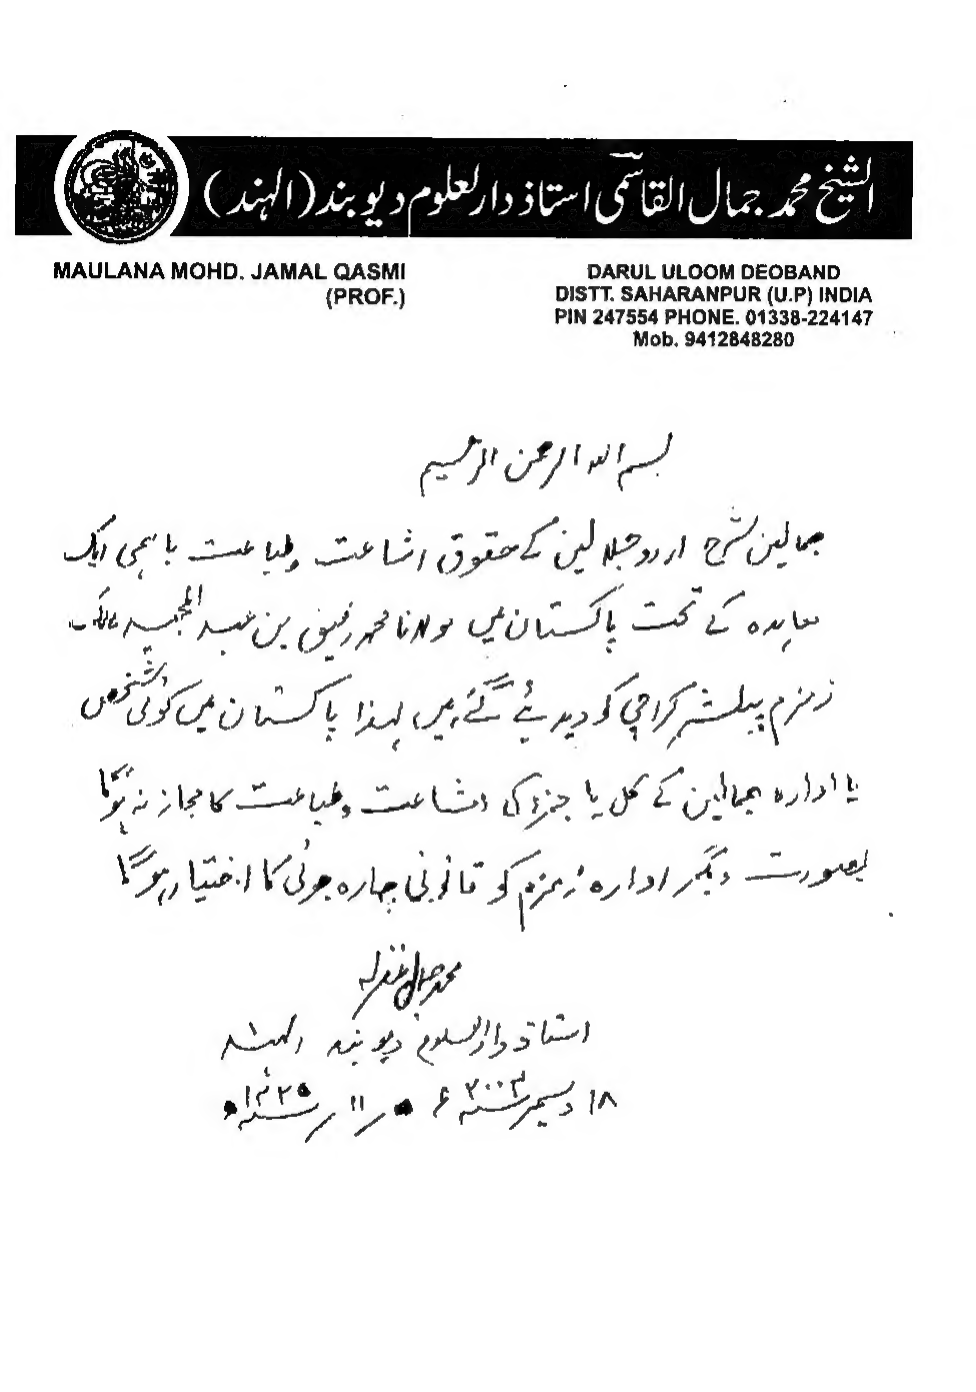 الشیخ محمد جمال القاسمی استاذ دارالعلوم دیوبند (الہند)
MAULANA MOHD. JAMAL QASMI
(PROF.)
DARUL ULOOM DEOBAND
DISTT. SAHARANPUR (U.P) INDIA
PIN 247554 PHONE. 01338-224147
Mob. 9412848280
بسم اللہ الرحمن الرحیم
جمالین شرح اردو جلالین کے حقوق اشاعت وطباعت باہمی ایک
معاہدہ کے تحت پاکستان میں مولانا محمد رفیق بن عبد المجید مالک
زمزم پبلشر کراچی کو دیدئے گئے ہیں لہذا پاکستان میں کوئی شخص
یا ادارہ جمالین کے کل یا جزء کی اشاعت وطباعت کا مجاز نہ ہوگا
بصورت دیگر ادارہ زمزم کو قانونی چارہ جوئی کا اختیار ہوگا
محمد جمال غفرلہ
استاذ دارالعلوم دیوبند الہند
۱۸ دسمبر ۲۰۰۳ء